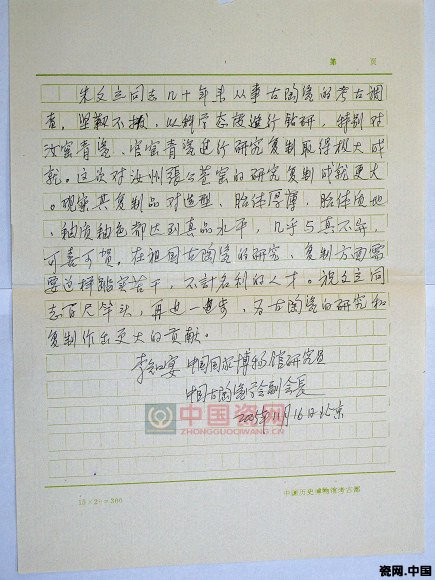 第 页
朱文立同志几十年来从事古陶瓷的考古调
查，坚韧不拔，以科学态度进行钻研，特别对
汝窑青瓷、官窑青瓷进行研究复制取得极大成
就。这次对汝州張公巷窑的研究复制成就更大
。观察其复制品对造型、胎体厚薄，胎体质地
、釉质釉色都达到真品水平，几乎与真不异，
可喜可贺。在祖国古陶瓷的研究、复制方面需
要这样踏实苦干，不計名利的人才。祝文立同
志百尺竿头，再进一步，为古陶瓷的研究和
复制作出更大的贡献。
李知宴 中国国家博物馆研究员
中国古陶瓷学会副会长
2005年11月16日北京
中国瓷网
ZHONGGUOCIWANG.CN
15×20=300
中国历史博物馆考古部
瓷网.中国